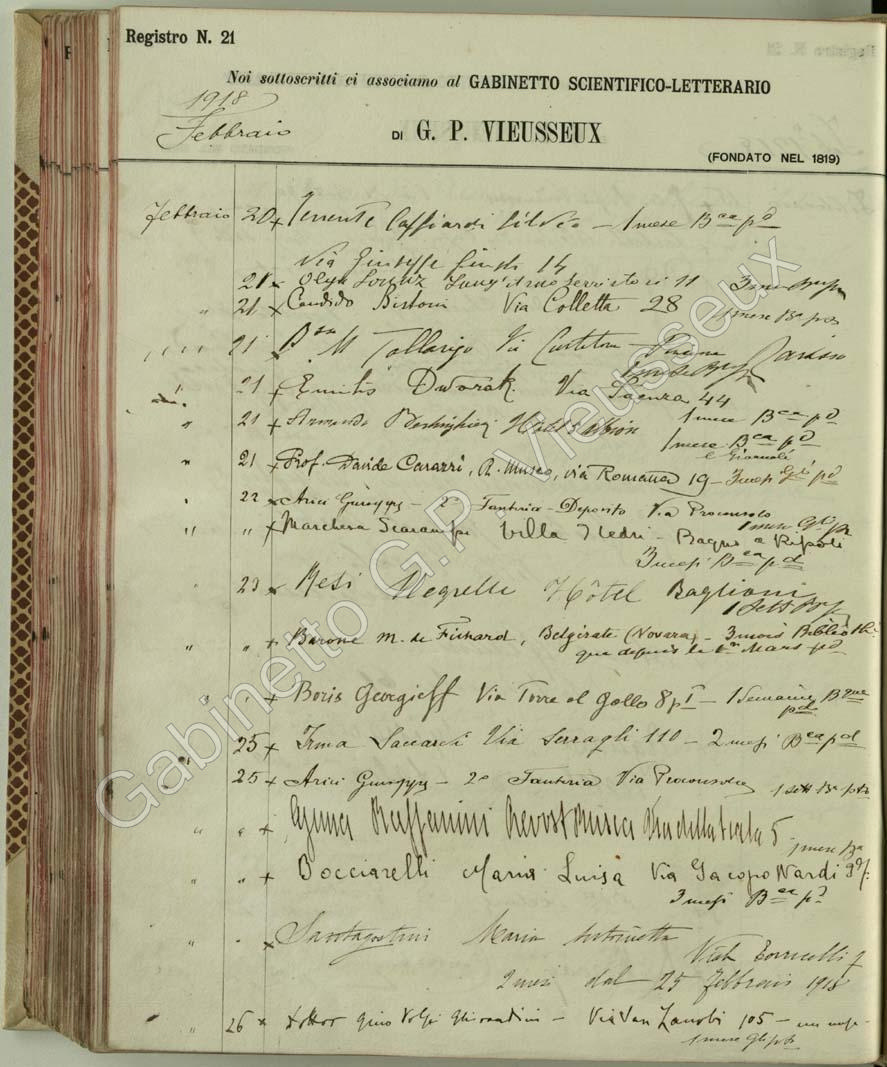 Registro N. 21
Noi sottoscritti ci associamo al GABINETTO SCIENTIFICO-LETTERARIO
1918
Febbraio
DI G. P. VIEUSSEUX
(FONDATO NEL 1819)
Febbraio 20 x Tenente Silvio – 1 mese Bca pd
Via Giuseppe Giusti 14
21 x Olga Lung'Arno Serristori 11 3 mesi
" 21 x Candido Via Colletta 28 1 mese Ba pto
" " " " 21 Bssa M Tallarigo Via
21 x Emilio Dworak Via Faenza 44
1 mese Bca pd
" 21 x Armando Hotel Albion
1 mese Bca pd
e Giornali
" 21 x Prof. Davide Carazzi, R. Museo, via Romana 19 – 3 mesi Gli pd
" 22 x Arici Giuseppe – 2o Fanteria – Deposito Via Proconsolo
1 mese Gli
" " " x Marchesa Scarampi Villa Hedri – Bagno a Ripoli
3 mesi Bca pd
" 23 x Resi Negrelli Hôtel Baglioni
1 Sett
" " x Barone M. de , Belgirate (Novara) – 3 mois Bibliothè-
que depuis le 1er Mars pd
" " x Boris Georgieff Via Torre al Gallo 8 pI – 1 Semaine Bque
pd
" 25 x Irma Saccardi Via Serragli 110 – 2 mesi Bca pd
25 x Arici Giuseppe – 2o Fanteria Via Proconsolo 1 sett Ba pto
" " x Raffanini Prevost Via della Scala 5
1 mese Ba
" " x Bocciarelli Maria Luisa Via Jacopo Nardi
3 mesi Bca pd
" " x Santagostini Maria Antonietta
Torricelli
2 mesi dal 25 Febbraio 1918
" 26 x Dottor Gino Volpi Ghirardini – Via San Zanobi 105 –
1 mese Gli pto
Gabinetto G.P. Vieusseux